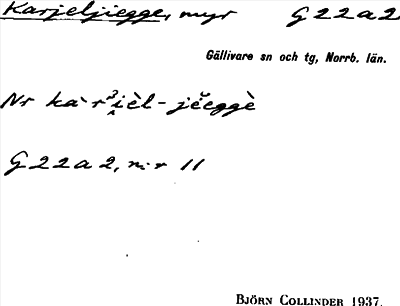 Karjeljiegge, myr G22a2
Gällivare sn och tg, Norrb. län.
Nr
G22a2, nr 11
BJÖRN COLLINDER 1937.